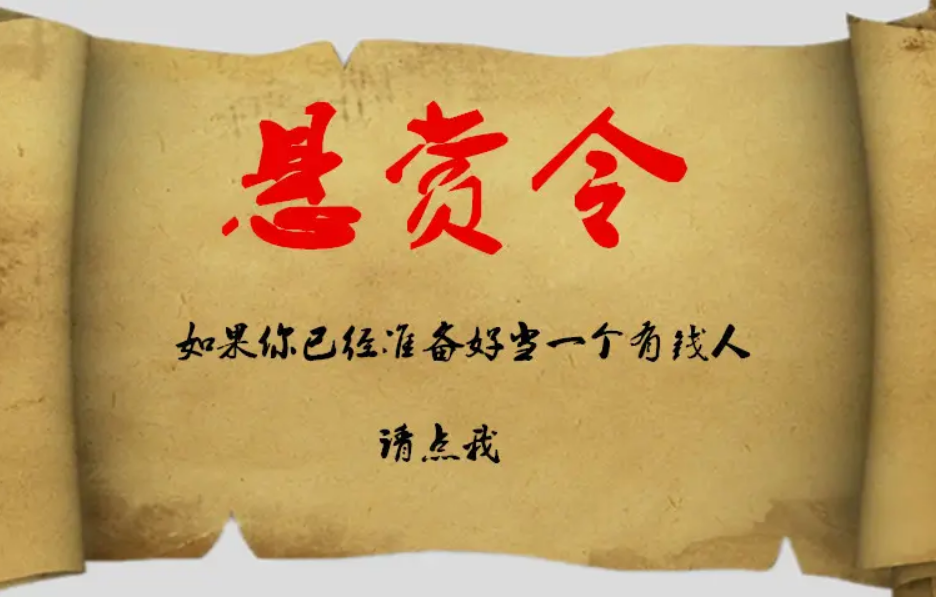 悬赏令
如果你已经准备好当一个有钱人
请点我